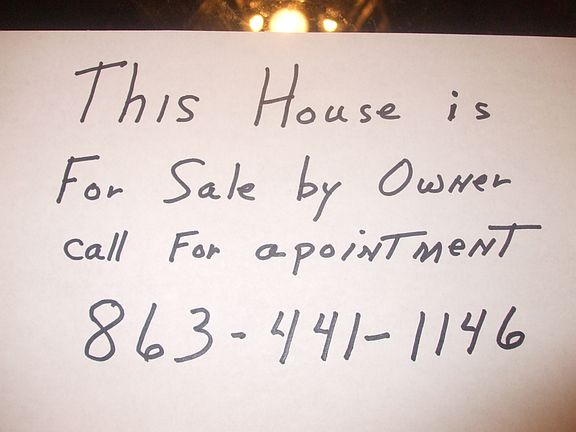 This House is
For Sale by Owner
call For apointment
863-441-1146